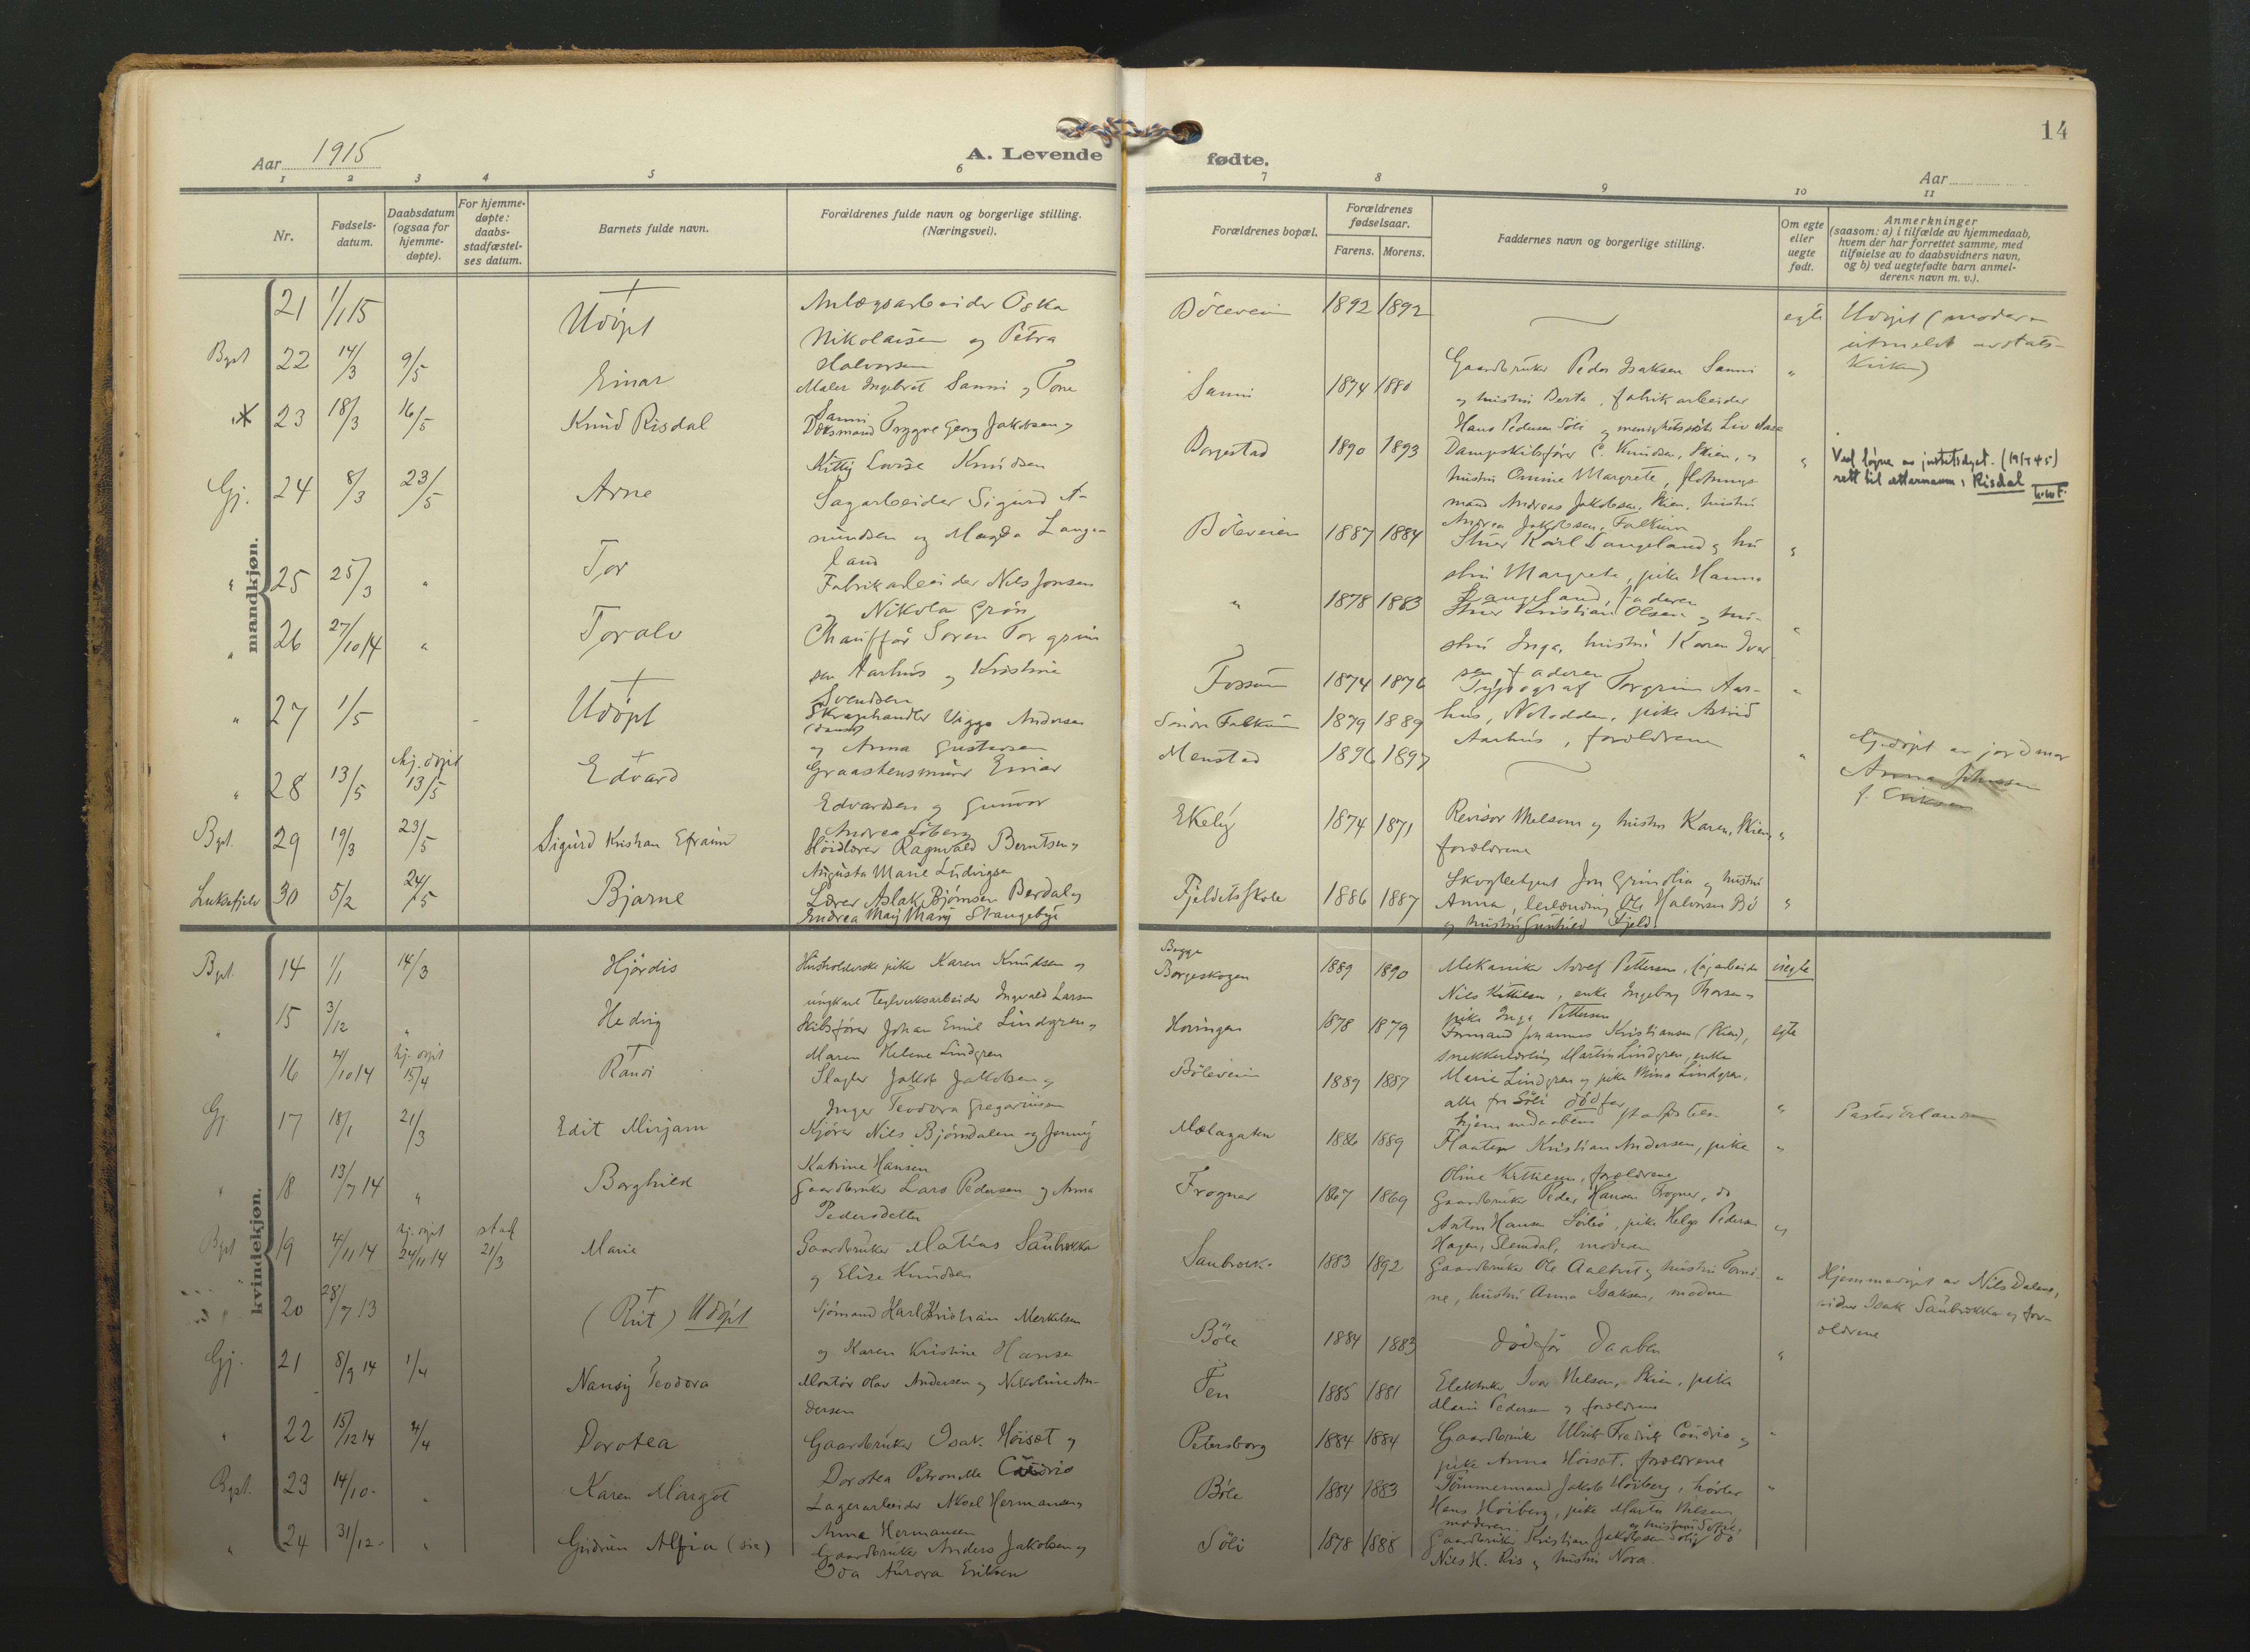 14
Aar 1915
A. Levende fødte.
Aar
1 2 3 4 5 6 7 8 9 10 11
Nr.
Fødsels-
datum.
Daabsdatum
(ogsaa for
hjemme-
døpte).
For hjemme-
døpte:
daabs-
stadfæstel-
ses datum.
Barnets fulde navn.
Forældrenes fulde navn og borgerlige stilling.
(Næringsvei).
Forældrenes bopæl.
Forældrenes
fødselsaar.
Farens. Morens.
Faddernes navn og borgerlige stilling.
Om egte
eller
uegte
født.
Anmerkninger
(saasom: a) i tilfælde av hjemmedaab,
hvem der har forrettet samme, med
tilføielse av to daabsvidners navn,
og b) ved uegtefødte barn anmel-
derens navn m. v.).
mandkjøn.
21 1/1 15 Udöpt
Anlægsarbeider Oska
Nikolaisen og Petra
Halvorsen
Böleveien 1892 1892 egte
Udöpt (moderen
utmeldt av stats-
kirken)
Bgst 22 14/3 9/5 Einar
Maler Ingebret Sanni og Tone
Sanni
Sanni 1874 1880
Gaardbruker Peder Isaksen Sanni
og hustru Berta, fabrikarbeider
Hans Pedersen Söli og menighetssöster Liv Aase
23 18/3 16/5 Knud Risdal
Doksmand Trygve Georg Jakobsen og
Kitty Lovise Knudsen
Borgestad 1890 1893
Dampskibsförer C. Knudsen, Skien, og
hustru Omine Margrete, flötnings-
mand Andreas Jakobsen, Skien, hustru
Andrea Jakobsen, Falkum
Ved løyve av justisdept. (19/7 45)
rett til ettarnamn: Risdal
Gj. 24 8/3 23/5 Arne
Sagarbeider Sigurd A-
mundsen og Magda Lange-
land
Böleveien 1887 1884
Stuer Karl Langeland og hu
stru Margrete, pike Hanna
Langeland, faderen
" 25 25/3 " Tor
Fabrikarbeider Nils Jonsen
og Nikola Grön
" 1878 1883
Stuer Kristian Olsen og hu-
stru Inga, hustru Karen Iver
sen, faderen
" 26 27/10 14 " Toralv
Chaufför Soren Torgrim
sen Aarhus og Kristine
Svendsen
Fossum 1874 1876
Typograf Torgrim Aar-
hus, Notodden, pike Astrid
Aarhus, forældrene
" 27 1/5 Udöpt
Skraphandler Viggo Andersen
(dansk)
og Anna Gustavsen
Söndre Falkum 1879 1889
" 28 13/5 hj. döpt 13/5 Edvard
Graastensmurer Einar
Edvardsen og Gunvor
Andrea Löberg
Menstad 1896 1897
Hj.döpt av jordmor
Anna Johnsen
f. Eriksen
Bgst. 29 19/3 23/5 Sigurd Kristian Efraim
Höidlærer Ragnvald Berntsen og
Augusta Marie Ludvigsen
Ekely 1874 1871
Revisor Melsom og hustru Karen, Skien,
forældrene
Luksefjeld 30 5/2 24/5 Bjarne
Lærer Aslak Bjørnsen Berdal og
Endrea Maij Mary Stangebye
Fjeldets skole 1886 1887
Skogbetjent Jon Grinilia og hustru
Anna, leilænding Ole Halvorsen Bö
og hustru Gunhild Fjeld.
kvindekjøn.
Bgst. 14 1/1 14/3 Hjördis
Husholderske pike Karen Knudsen og
ungkarl Teglverksarbeider Ingvald Larsen
Begge
Borgeskogen 1889 1890
Mekaniker Adolf Pettersen, fagarbeider
Nils Kittilsen, enke Ingeborg Thorsen og
pike Inga Pettersen
uegte
" 15 3/12 " Hedvig
Skibsförer Johan Emil Lindgren og
Maren Helene Lindgren
Hovingen 1878 1879
Formand Johannes Kristiansen (Skien),
snekkerlærling Martin Lindgren, enke
Marie Lindgren og pike Mina Lindgren,
alle fra Söli
egte
16 4/10 14 hj. döpt 15/4 Randi
Slagter Jakob Jakobsen og
Inger Teodora Gregoriusen
Böleveien 1889 1887
död før
hjemmedaabens stadfæstelse
Pastor Erlandsen
Gj. 17 18/1 21/3 Edit Mirjam
Kjörer Nils Björndalen og Jenny
Katrine Hansen
Mælagaten 1886 1889
Fløater Kristian Andersen, pike
Oline Kittilsen, forældrene
" 18 13/7 14 " Borghild
Gaardbruker Lars Pedersen og Anna
Pedersdatter
Frogner 1867 1869
Gaardbruker Peder Hansen Frogner, do
Anton Hansen Sölie, pike Helga Pedersen
Hagen, Slemdal, moderen
Bgst 19 4/11 14 hj. döpt 24/11 14 stad 21/3 Marie
Gaardbruker Matias Saubrokka
og Elise Knudsen
Saubrokk. 1883 1892
Gaardbruker Ole Aaltvet og hustru Tomi-
ne, hustru Anna Isaksen, moderen
Hjemmedöpt av Nils Dalene,
vidner Isak Saubrokka og for-
ældrene
" 20 28/7 13 (Rut) Udöpt
Sjömand Karl Kristian Merkelsen
og Karen Kristine Hansen
Böle 1884 1883
död før daaben
Gj. 21 8/9 14 1/4 Nansy Teodora
Montör Olav Andersen og Nikoline An-
dersen
Fen 1885 1881
Elektriker Ivar Nelsen, Skien, pike
Marie Pedersen og forældrene
" 22 15/12 14 4/4 Dorotea
Gaardbruker Isak Höisæt og
Dorotea Petronelle Cöndrio
Petersborg 1884 1884
Gaardbruker Ulrik Fredrik Cöndrio og
pike Anna Höisæt, forældrene
Bgst. 23 14/10 " Karen Margot
Lagerarbeider Aksel Hermansen og
Anna Hermansen
Böle 1884 1883
Tömmermand Jakob Höiberg, hövler
Hans Höiberg, pike Marta Nilsen
moderen.
" 24 31/12 " Gudrun Alfia (sic)
Gaardbruker Anders Jakobsen og
Ida Aurora Eriksen
Söli 1878 1888
og hustru Sofie,
Gaardbruker Kristian Jakobsen Soli, do
Nils K. Ris og hustru Nora.